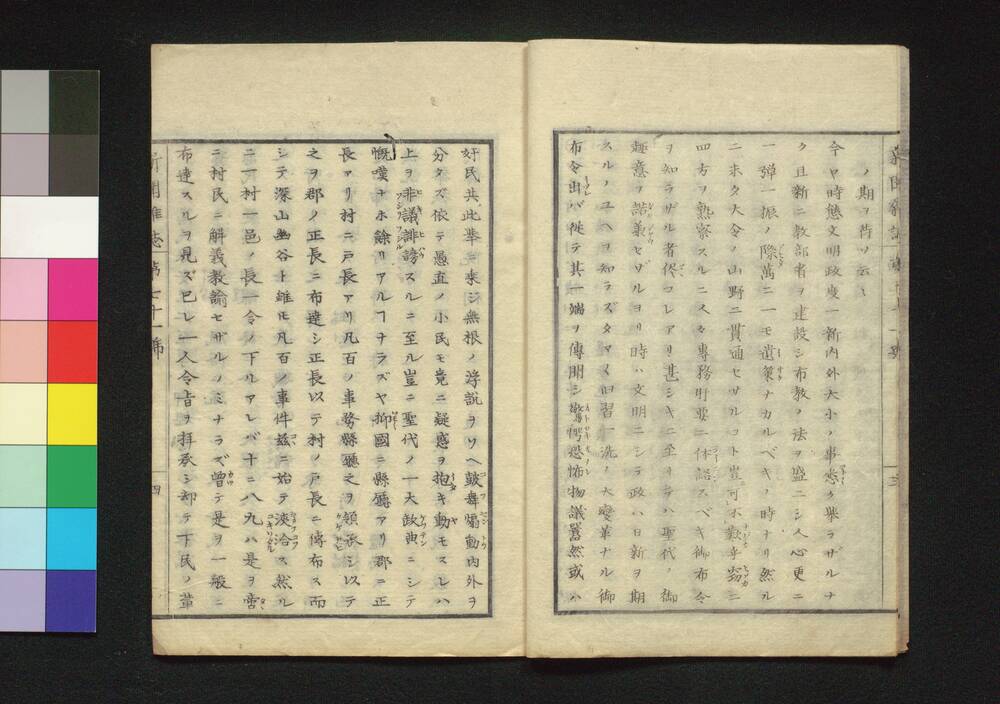 ノ期ヲ苟ソ云々
今ヤ時態文明政度一新內外大小ノ事悉ク擧ラザルナ
ク且新ニ教部省ヲ建設シ布教ノ法ヲ盛ニシ人心更ニ
一彈一振ノ際萬ニ一モ遺策ナカルベキノ時ナリ然ル
ニ未タ大令ノ山野ニ貫通セザルコト豈可不歎乎竊ニ
四方ヲ熟察スルニ人々專務肝要ニ体認スベキ御布令
ヲ知ラザル者儘コレアリ甚シキニ至リテハ聖代ノ御
趣意ヲ諧稟セザルヨリ時ハ文明ニシテ政ハ日新ヲ期
スルノユヘヲ知ラズタマ〱旧習一洗ノ大變革ナル御
布令出バ徙テ其一端ヲ傳聞シ驚愕恐怖物議囂然或ハ
奸民共此擧ニ乘シ無根ノ浮說ヲソヘ鼓舞煽動內外ヲ
分タズ依テ愚直ノ小民モ竟ニ疑惑ヲ抱キ動モスレハ
上ヲ非議誹謗スルニ至ル豈ニ聖代ノ一大缺典ニシテ
慨嘆ナホ餘リアルヿナラズヤ抑國ニ縣廳アリ郡ニ正
長アリ村ニ戸長アリ凡百ノ事務縣廳之ヲ領承シ以テ
之ヲ郡ノ正長ニ布達シ正長以テ村ノ戸長ニ傳布ス而
シテ深山幽谷ト雖モ凡百ノ事件茲ニ始テ浹洽ス然ル
ニ一村一邑ノ長一令ノ下ルアレバ十ニ八九ハ是ヲ啻
ニ村民ニ解義教諭セザルノミナラズ曾テ是ヲ一般ニ
布達スルヲ見ズ已レ一人令旨ヲ拜承シ却テ下民ノ輩
新聞雜誌第七十一號
四